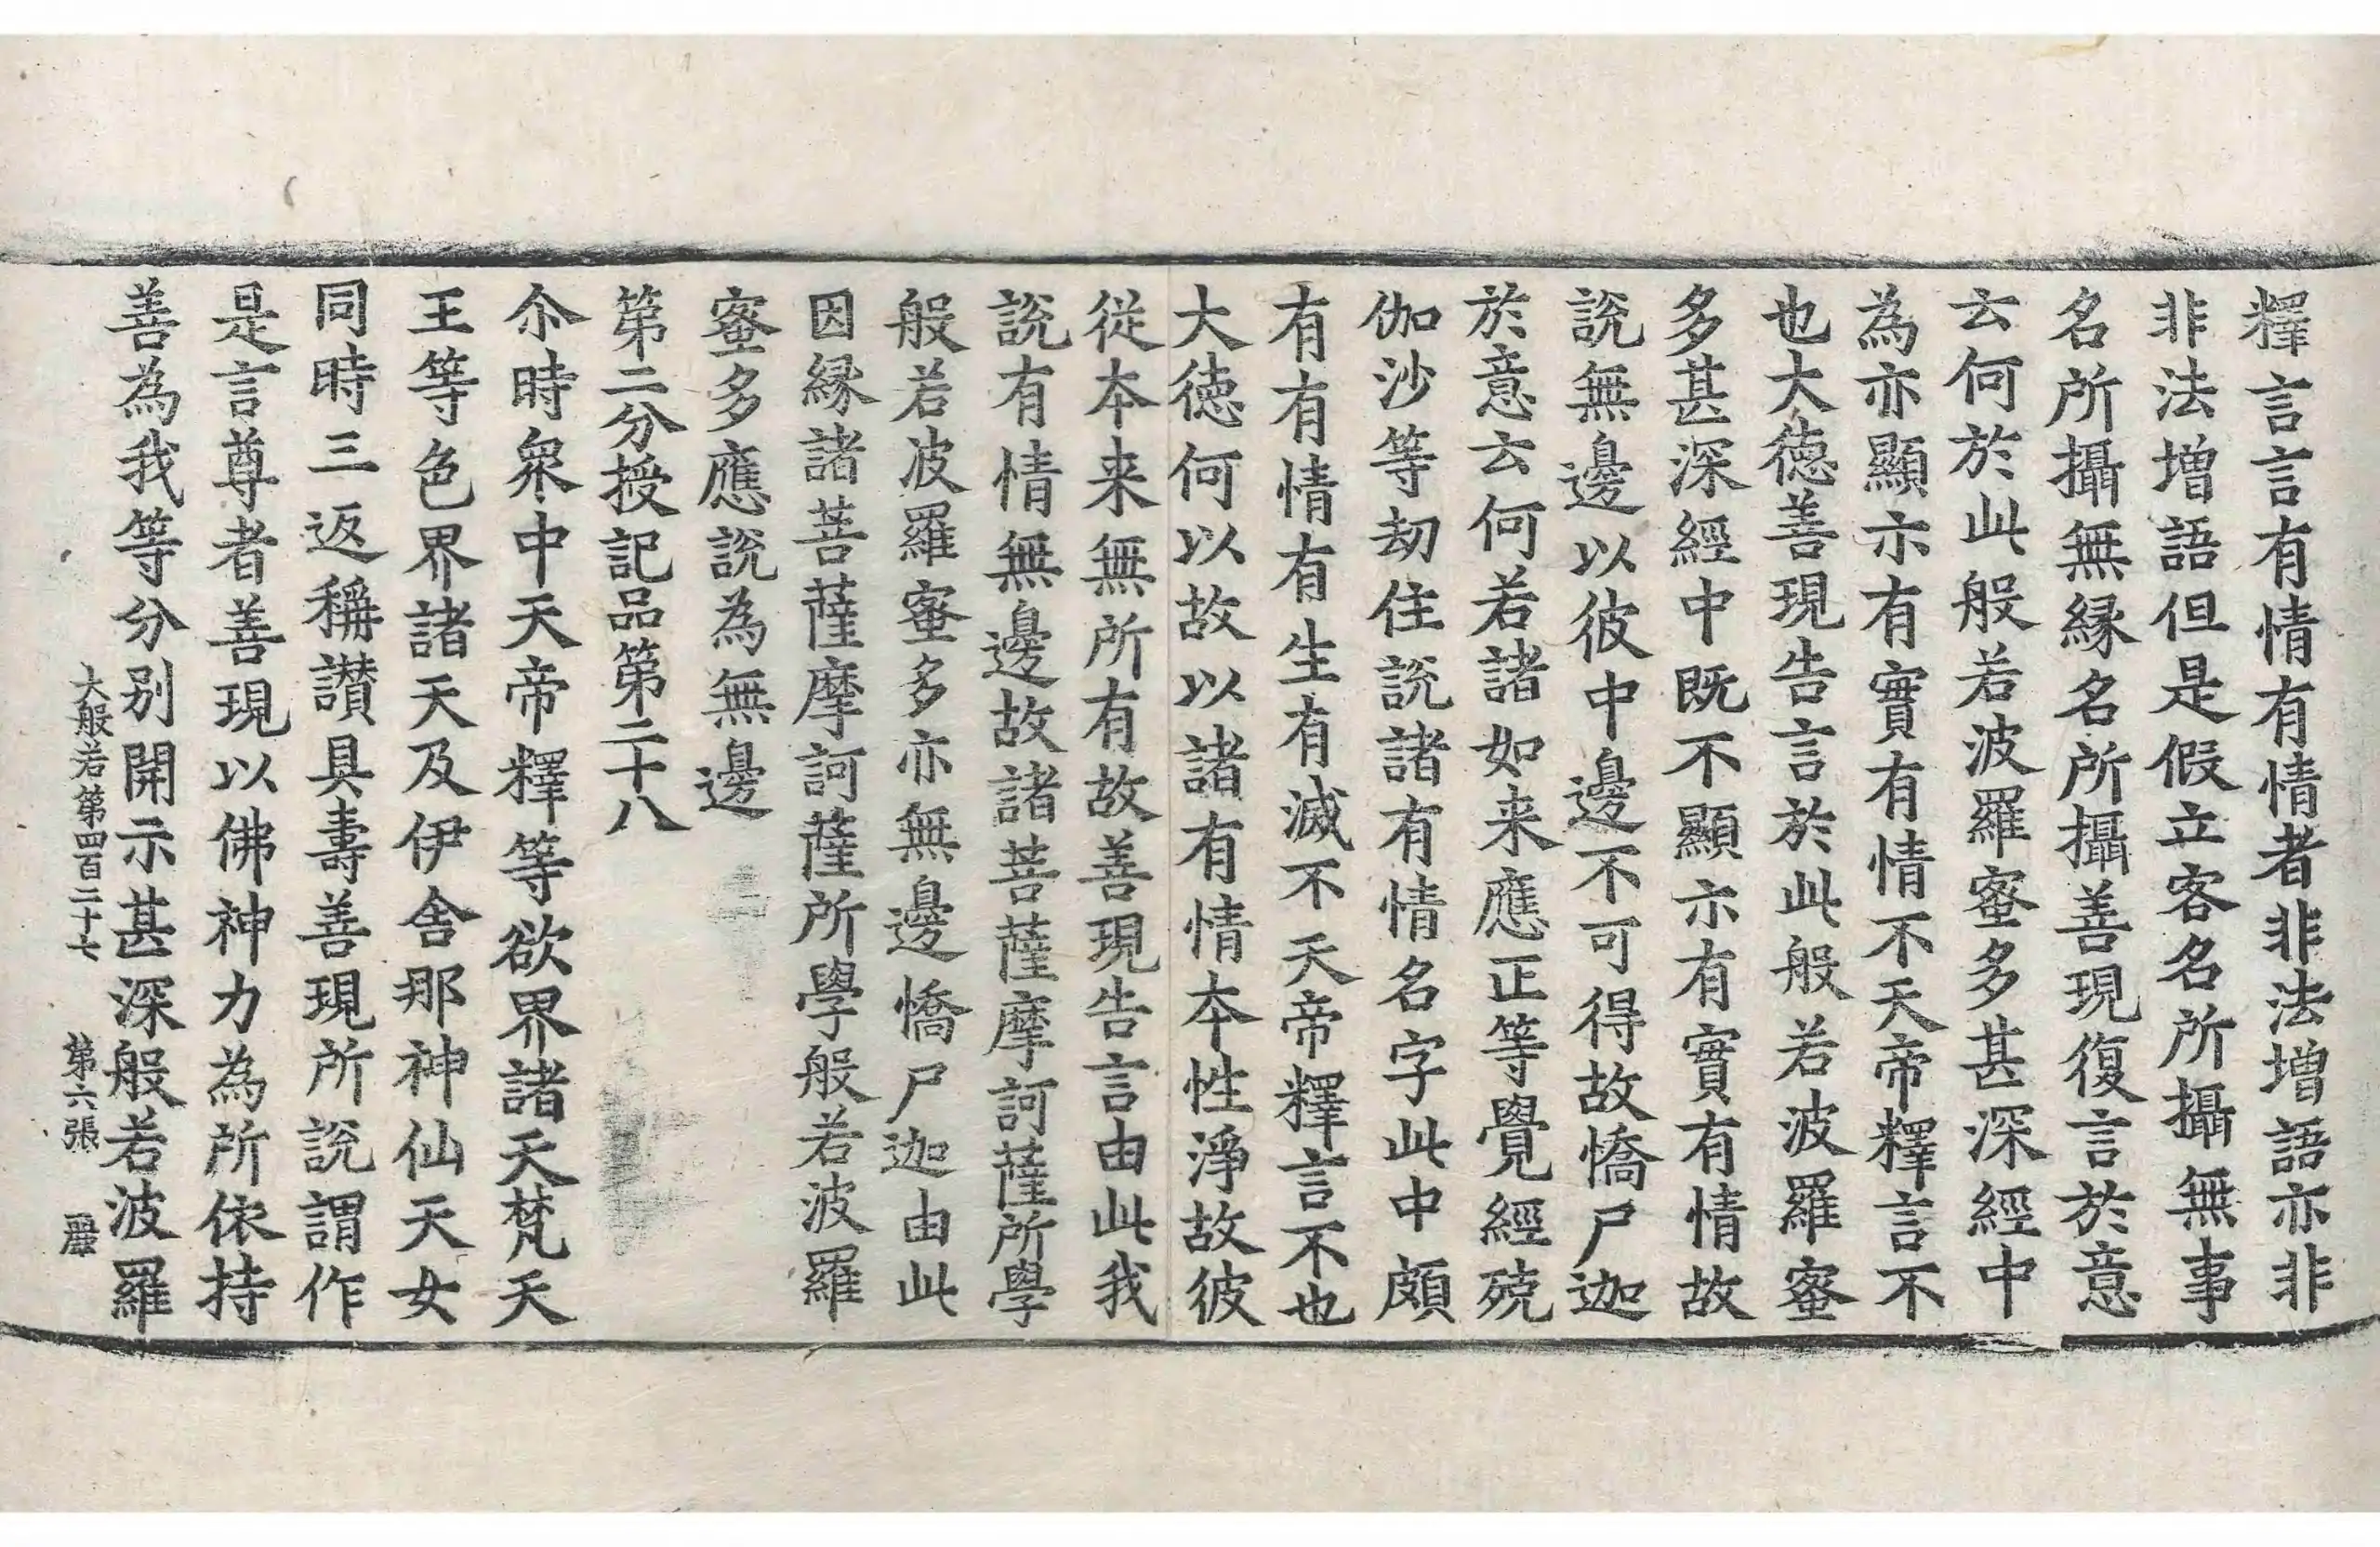 釋言言有情有情者非法增語亦非
非法增語但是假立客名所攝無事
名所攝無緣名所攝善現復言於意
云何於此般若波羅蜜多甚深經中
為亦顯示有實有情不天帝釋言不
也大德善現告言於此般若波羅蜜
多甚深經中既不顯示有實有情故
說無邊以彼中邊不可得故憍尸迦
於意云何若諸如来應正等覺經殑
伽沙等劫住說諸有情名字此中頗
有有情有生有滅不天帝釋言不也
大德何以故以諸有情本性淨故彼
從本来無所有故善現告言由此我
說有情無邊故諸菩薩摩訶薩所學
般若波羅蜜多亦無邊憍尸迦由此
因緣諸菩薩摩訶薩所學般若波羅
蜜多應說為無邊
第二分授記品第二十八
尒時衆中天帝釋等欲界諸天梵天
王等色界諸天及伊舍那神仙天女
同時三返稱讃具壽善現所說謂作
是言尊者善現以佛神力為所依持
善為我等分別開示甚深般若波羅
大般若第四百二十七 第六張